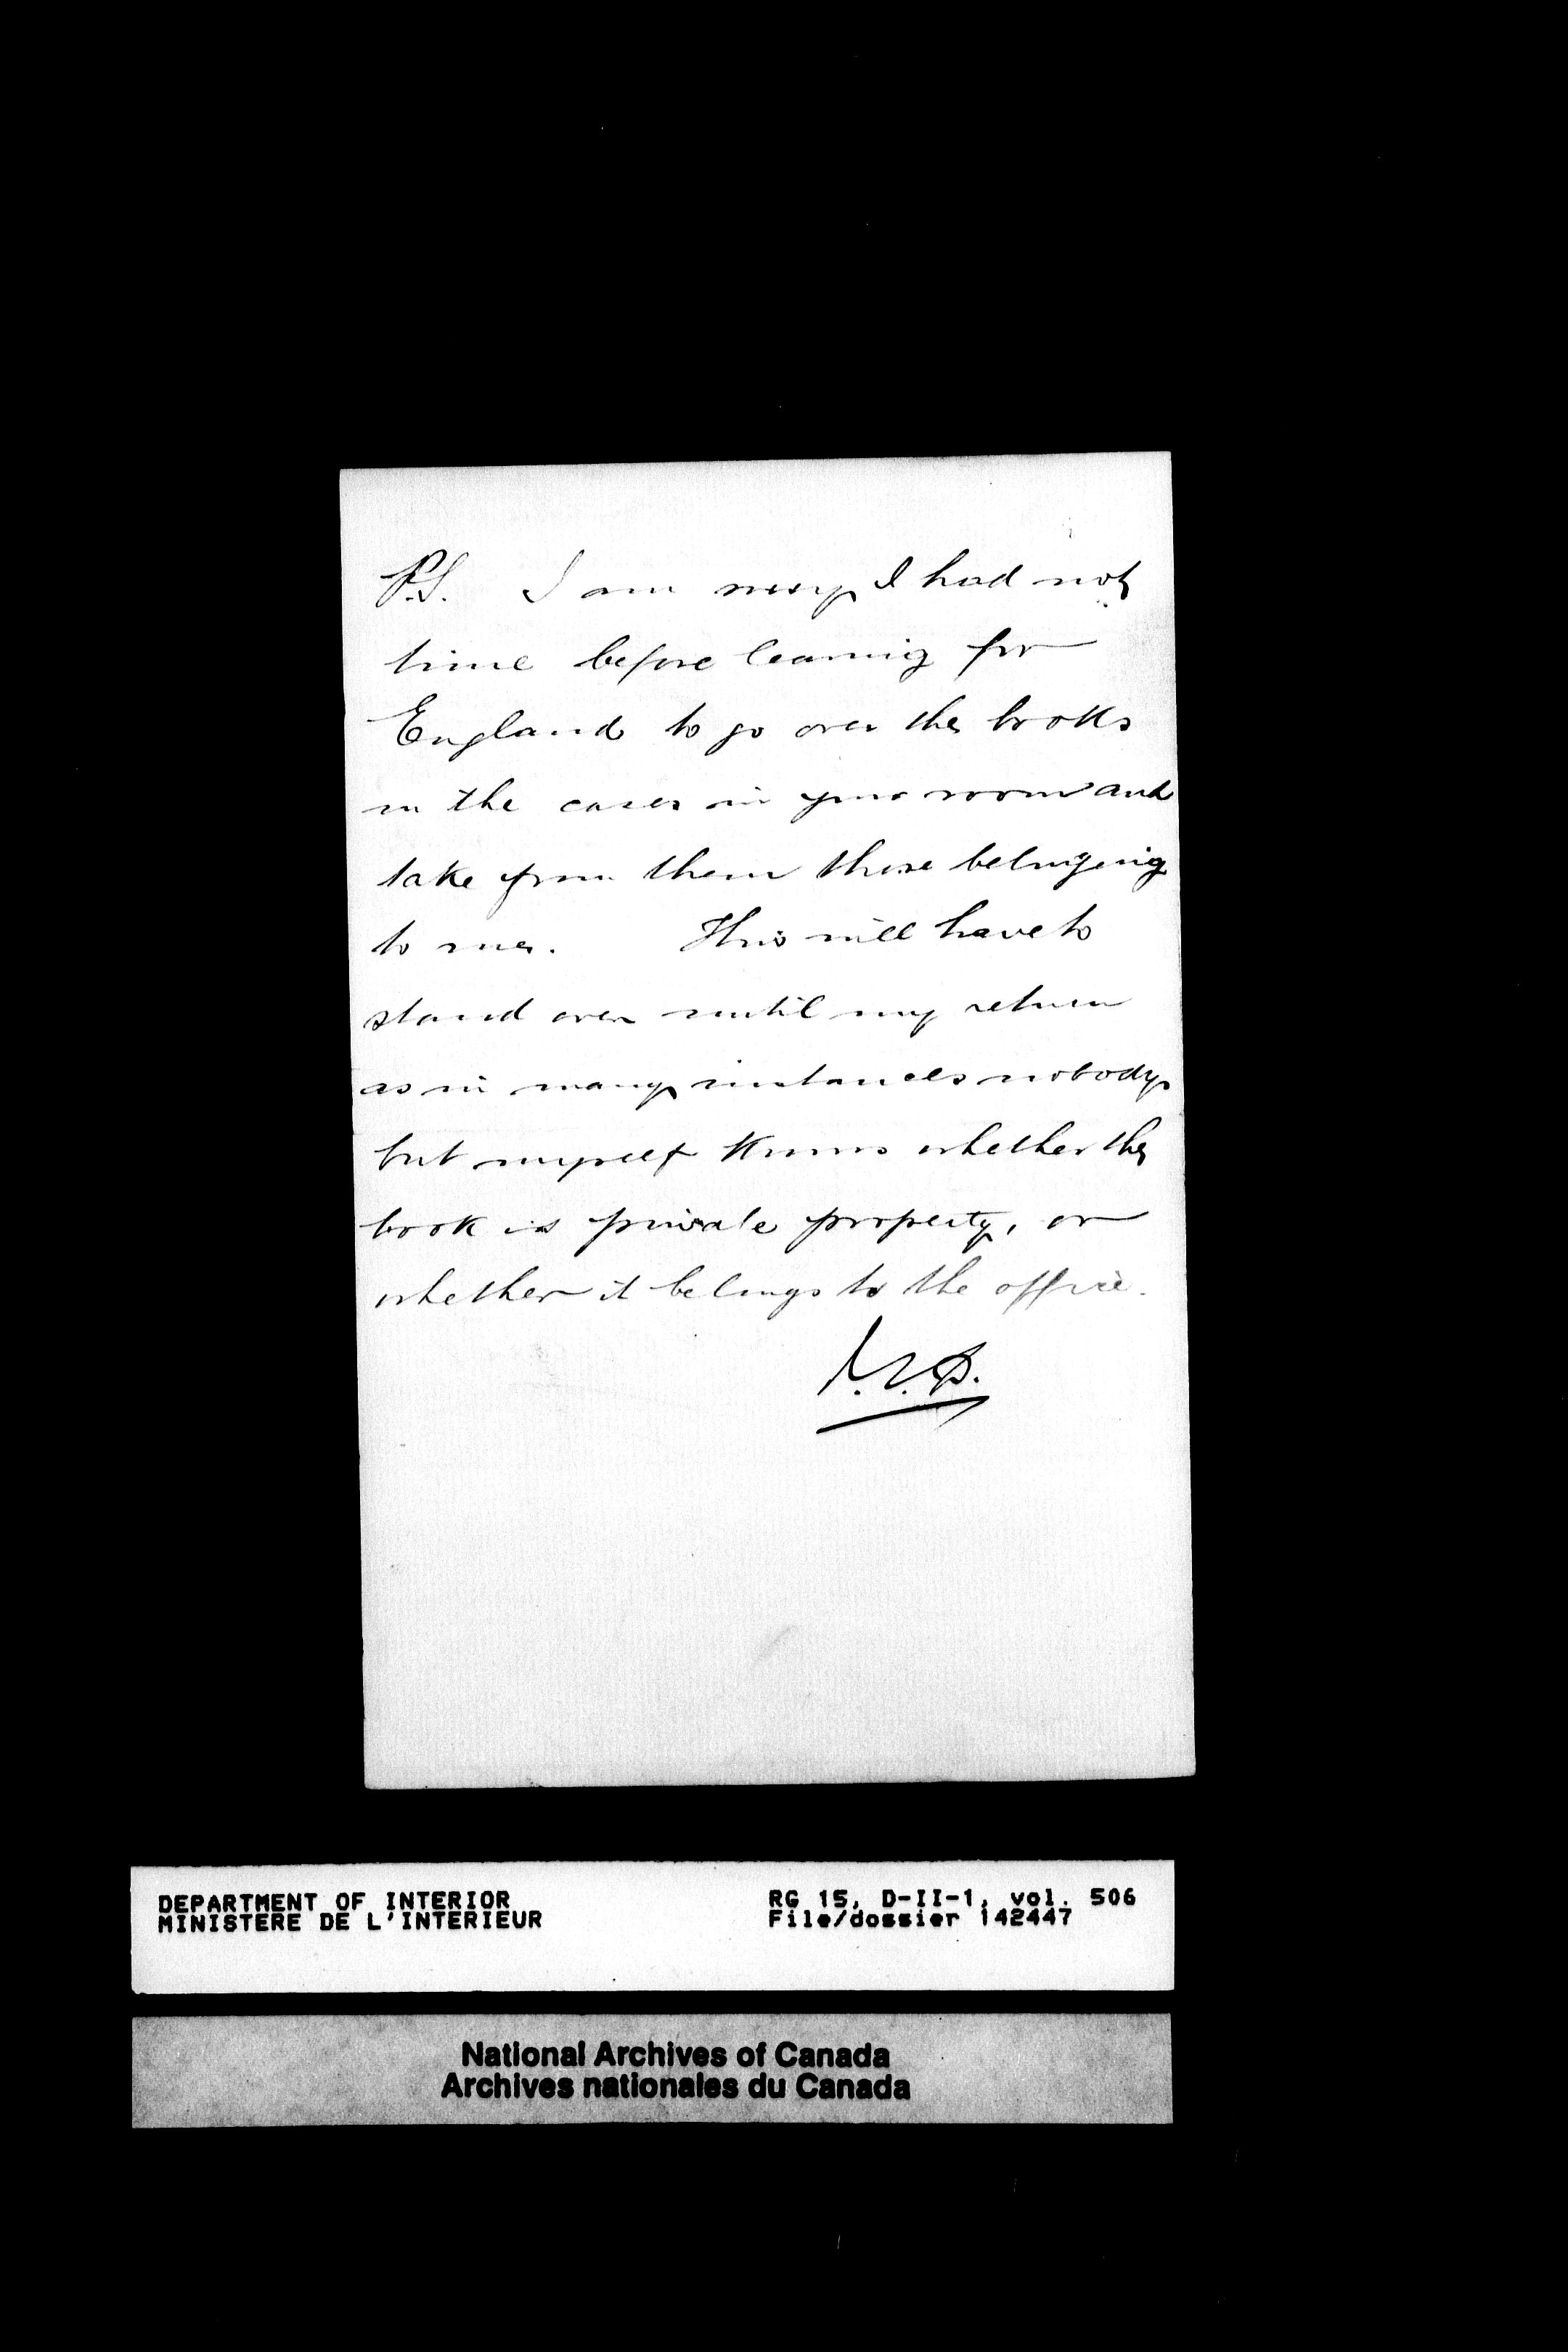 P.S. I am sorry I had not
time before leaving for
England to go over the books
in the cases in your room and
take from them those belonging
to me. This will have to
stand over until my return
as in many instances nobody
but myself knows whether the
book is private property, or
whether it belongs to the office.
DEPARTMENT OF INTERIOR
MINISTERE DE L'INTERIEUR
RG 15, D-II-1, vol. 506
File/dossier 142447
National Archives of Canada
Archives nationales du Canada